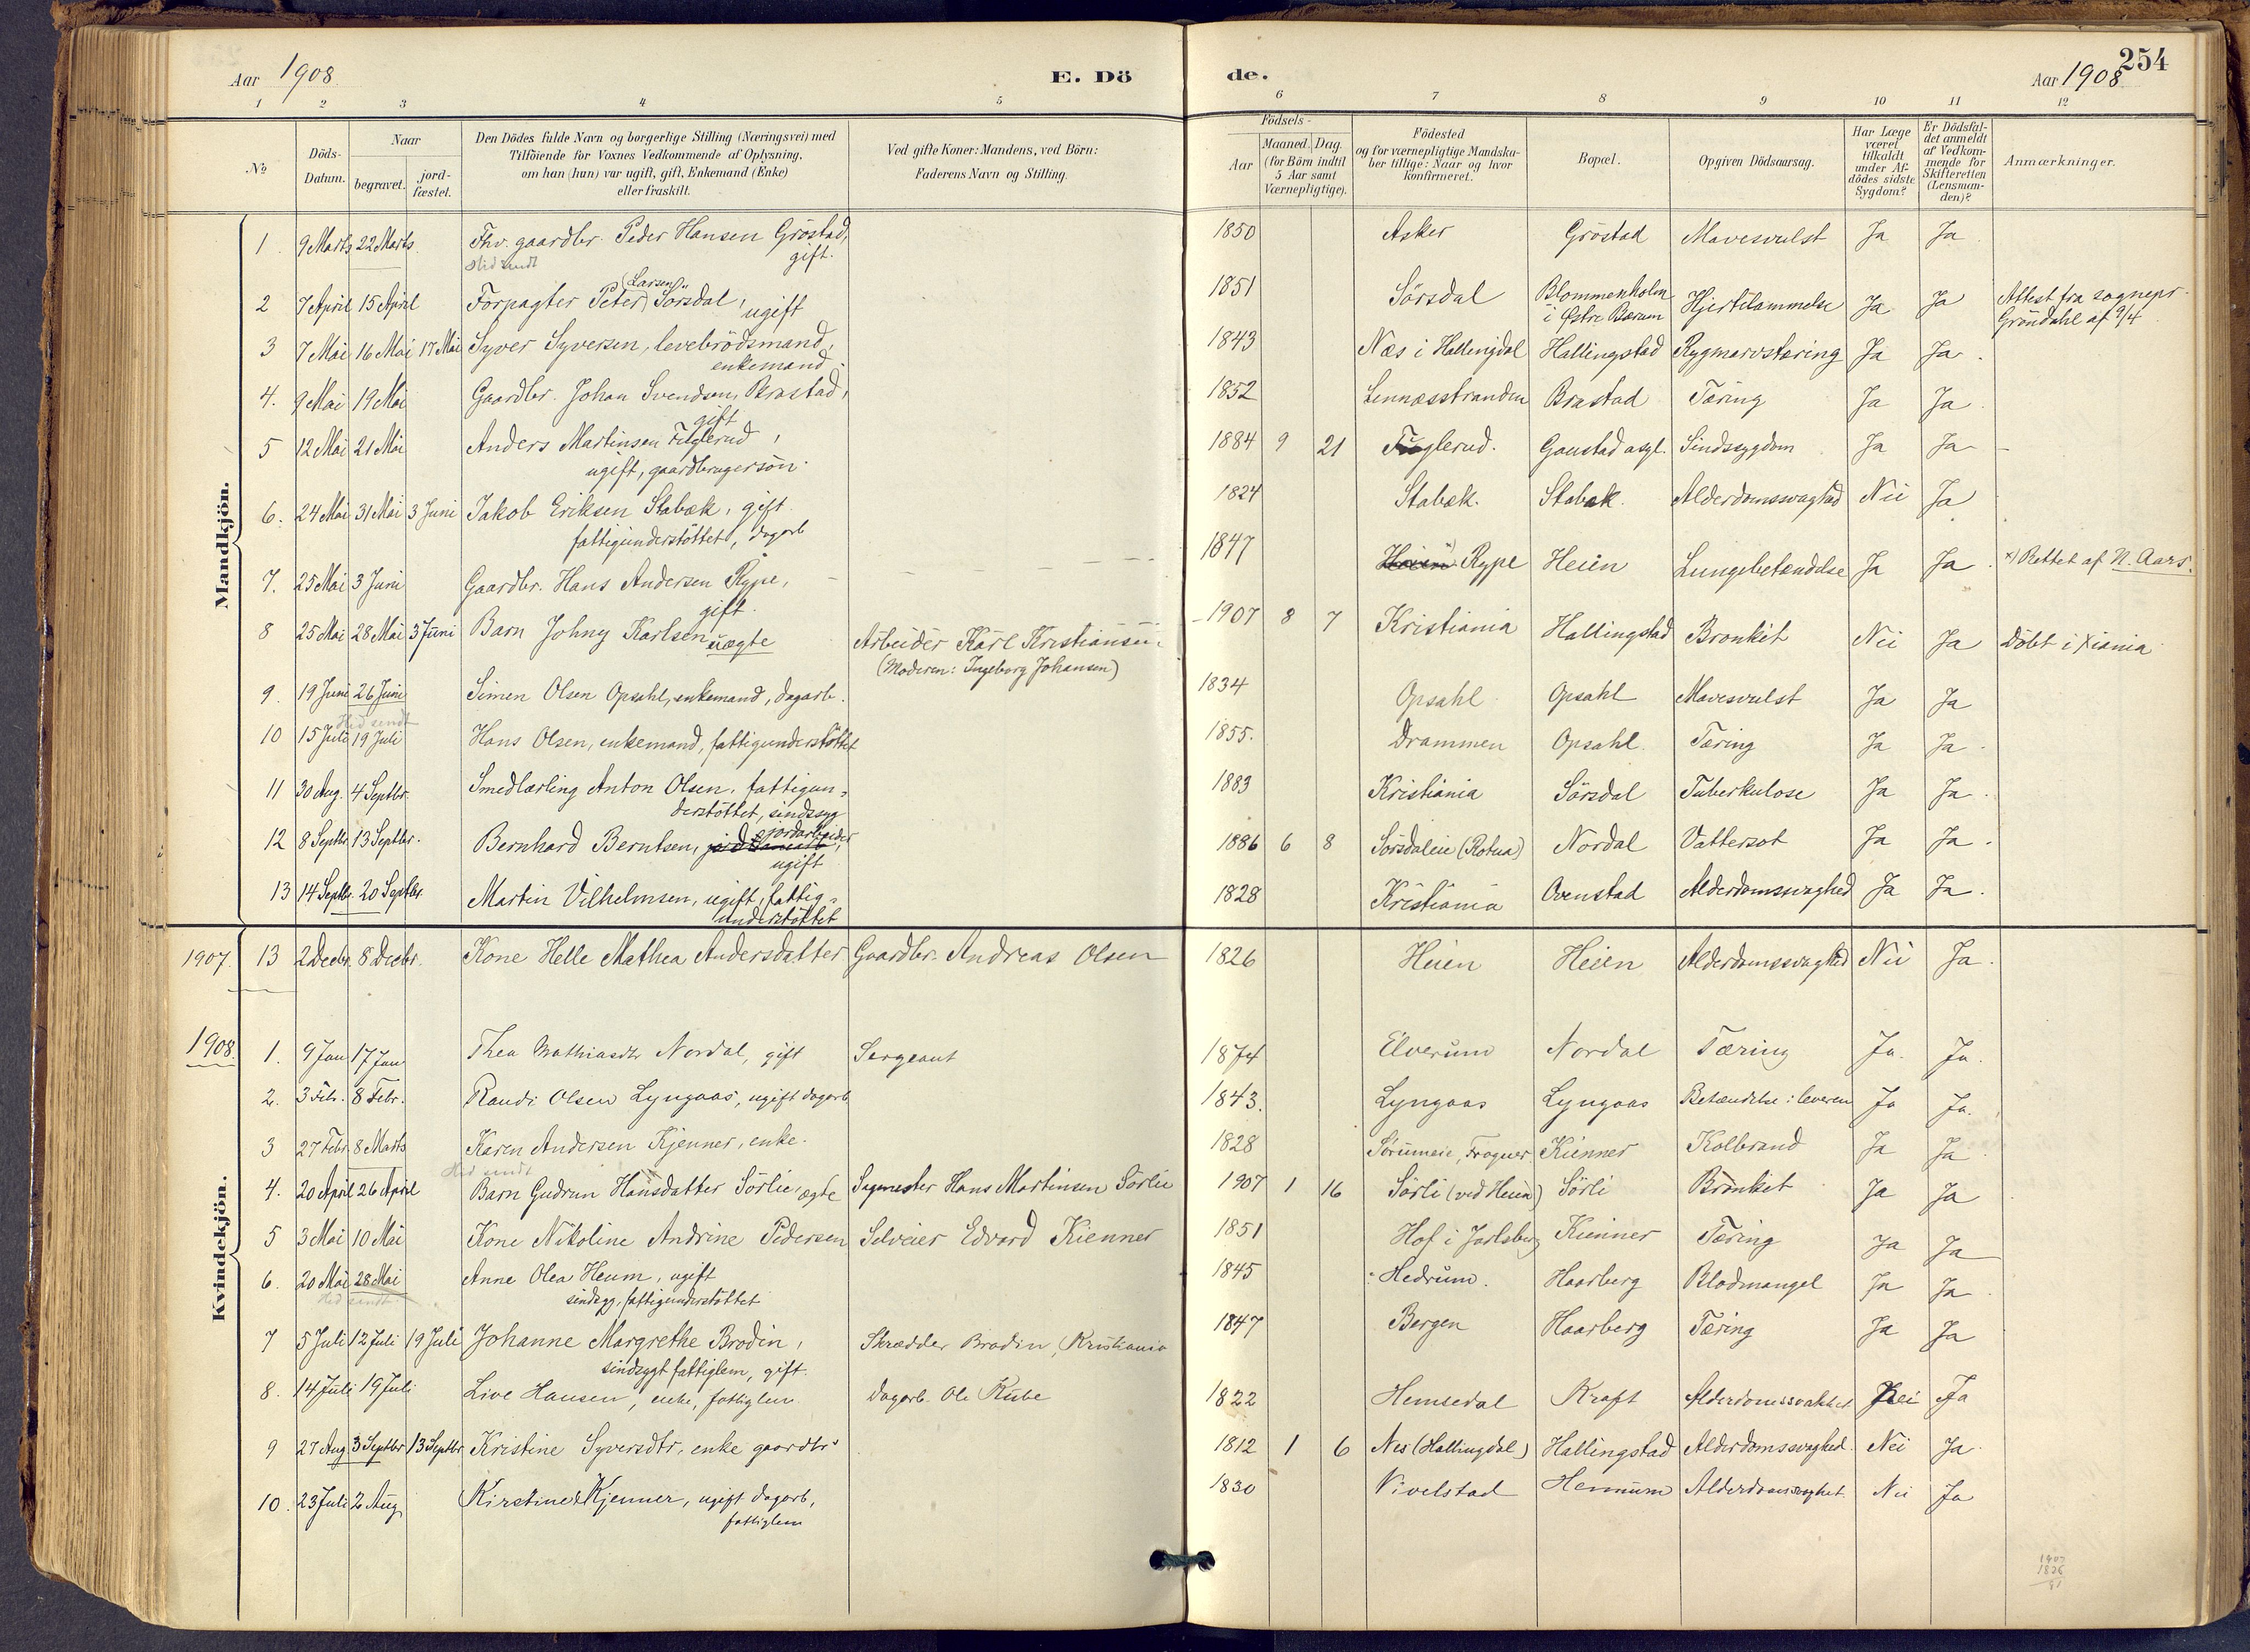 Aar 1908. E. Dö
1 2 3 4 5
No
Döds-Datum.
Naar
begravet.
jord-fæstet.
Den Dödes fulde Navn og borgerlige Stilling (Næringsvei) med
Tilföiende for Voxnes Vedkommende af Oplysning,
om han (hun) var ugift, gift, Enkemand (Enke)
eller fraskilt.
Ved gifte Koner: Mandens, ved Börn:
Faderens Navn og Stilling.
Mandkjön.
1. 9 Marts 22 Marts Fhv. gaardbr. Peder Hansen Gröstad,
gift.
Hid sendt
(Larsen)
2 7 April 15 April Forpagter Peter Sörsdal, ugift
3 7 Mai 16 Mai 17 Mai Syver Syversen, levebrödsmand,
enkemand.
4. 9 Mai 19 Mai Gaardbr. Johan Svendsen Brastad,
gift
5 12 Mai 21 Mai Anders Martinsen Fuglerud,
ugift, gaardbrugersön.
6. 24 Mai 31 Mai 3 Juni Jakob Eriksen Stabæk, gift.
fattigunderstöttet, dagarb
7. 25 Mai 3 Juni Gaardbr. Hans Andersen Rype,
gift.
8 25 Mai 28 Mai 3 Juni Barn Johny Karlsen uægte Arbeider Karl Kristiansen.
(Moderen: Ingeborg Johansen)
9. 19 Juni 26 Juni Simen Olsen Opsahl, enkemand, dagarb.
Hid sendt
10 15 Juli 19 Juli Hans Olsen, enkemand, fattigunderstöttet
11 30 Aug. 4 Septbr. Smedlærling Anton Olsen, fattigun-
derstöttet, sindssyg
12 8 Septbr. 13 Septbr. Bernhard Berntsen, jordarbeider,
ugift
13 14 Septbr. 20 Septbr. Martin Vilhelmsen, ugift, fattig-
understöttet
1907. 13 2 Decbr. 8 Decbr. Kone Helle Mathea Andersdatter Gaardbr. Andreas Olsen
Kvindekjön.
1908. 1. 9 Jan 17 Jan Thea Mathiasdtr Nordal, gift Sergeant
2. 3 Feb. 8 Febr. Randi Olsen Lyngaas, ugift dagarb
3 27 Febr. 8 Marts Karen Andersen Kjenner, enke.
Hid sendt
4. 20 April 26 April Barn Gudrun Hansdatter Sörlie, ægte Sagmester Hans Martinsen Sörlie
5 3 Mai 10 Mai Kone Nikoline Andrine Pedersen Selveier Edvard Kienner
6. 20 Mai 28 Mai Anne Olea Heum, ugift
Hid sendt. sindsyg, fattigunderstöttet
7 5 Juli 12 Juli 19 Juli Johanne Margrethe Brodin, Skrædder Brodin, Kristiania
sindsygt fattiglem, gift.
8. 14 Juli 19 Juli Live Hansen, enke, fattiglem. Dagarb. Ole Kube
9 27 Aug 3 Septbr 13 Septbr Kristine Syversdtr, enke gaardbr
10. 23 Juli 2 Aug Kirstine Kjenner, ugift dagarb,
fattiglem
de. Aar 1908 254
6 7 8 9 10 11 12
Födsels-
Aar
Maaned. Dag.
(for Börn indtil
5 Aar samt
Værnepligtige).
Födested
og for værnepligtige Mandska-
ber tillige: Naar og hvor
konfirmeret.
Bopæl.
Opgiven Dödsaarsag.
Har Læge
været
tilkaldt
under Af-
dödes sidste
Sygdom?
Er Dödsfal-
det anmeldt
af Vedkom-
mende for
Skifteretten
(Lensman-
den)?
Anmærkninger.
1850 Asker Gröstad Mavesvulst Ja Ja
1851 Sörsdal Blommenholm i Østre Bærum Hjertelammelse Ja Ja Attest fra sognepr. Gröndahl af 9/4
1843 Næs i Hallingdal Hallingstad Rygmarvstæring Ja Ja.
1852 Lennæsstranden Brastad Tæring Ja Ja
1884 9 21 Fuglerud. Gaustad asyl. Sindssygdom Ja Ja
1824 Stabæk. Stabæk. Alderdomssvaghed Nei Ja
1847 Heien Rype Heien Lungebetændelse Ja Ja. x) Rettet af N. Aars.
1907 8 7 Kristiania Hallingstad Bronkit Nei Ja Döbt i Xiania
1834 Opsahl Opsahl Mavesvulst Ja Ja
1855. Drammen Opsahl Tæring Ja Ja.
1883 Kristiania Sörsdal Tuberkulose Ja Ja.
1886 6 8 Sörsdaleie (Rotua) Nordal Vattersot Ja Ja.
1828 Kristiania Ovenstad Alderdomssvaghed Ja Ja.
1826 Heien Heien Alderdomssvaghed Nei Ja.
1874 Elverum Nordal Tæring Ja. Ja.
1843. Lyngaas Lyngaas Betændelse i leveren Ja Ja.
1828 Sörumeie, Frogner Kienner Kolbrand Ja Ja.
1907 1 16 Sörli (ved Heien) Sörli Bronkit Ja Ja
1851 Hof i Jarlsberg Kienner Tæring Ja Ja
1845 Hedrum. Haarberg Blodmangel Ja Ja.
1847 Bergen Haarberg Tæring Ja Ja
1822 Hemsedal Kraft Alderdomssvakhet Nei Ja
1812 1 6 Nes (Hallingdal) Hallingstad Alderdomssvaghed. Nei Ja
1830 Vivelstad Hennum Alderdomssvaghet. Nei Ja
1907
1826
81